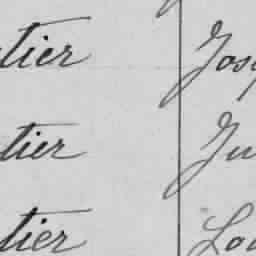 tier Jos
tier Ju
tier Lou